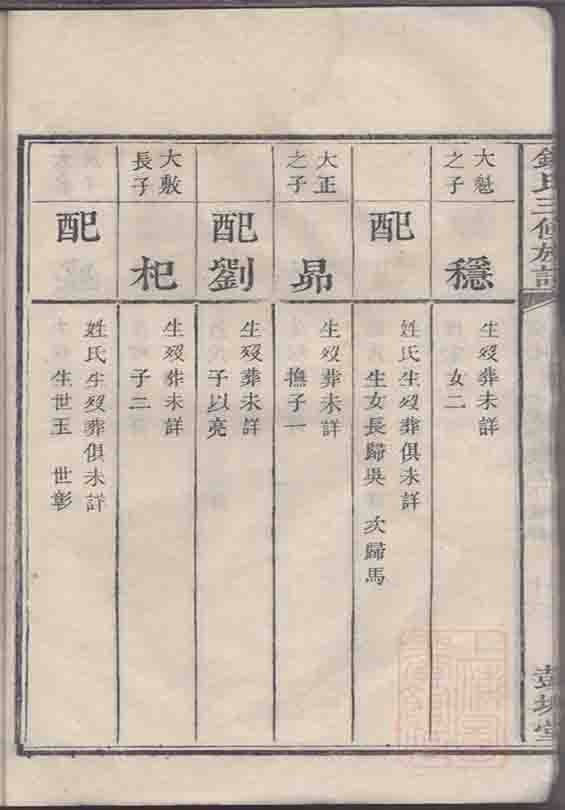 氏三修族譜
大魁
之子
穩
生歿葬未詳
女二
配
姓氏生歿葬俱未詳
生女長歸吳 次歸馬
大正
之子
昴
生歿葬未詳
撫子一
配劉
生歿葬未詳
子以亮
大敷
長子
杞
生歿葬未詳
子二
配
姓氏生歿葬俱未詳
生世玉 世彰
彭城堂